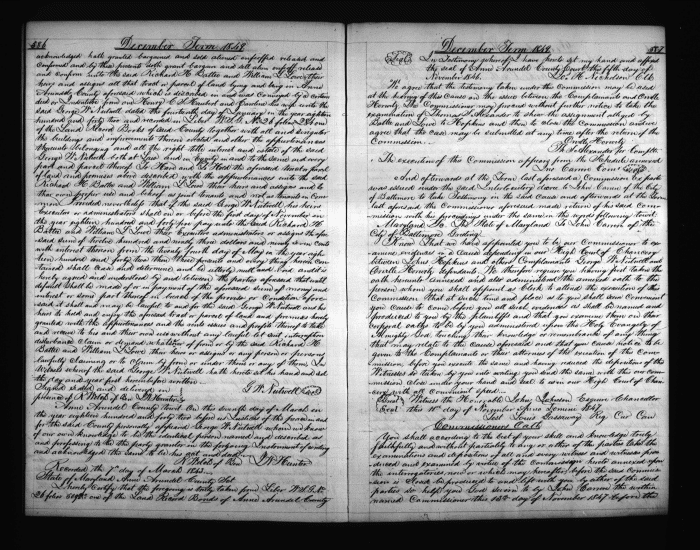 386 December Term 1848
acknowledged hath granted bargained and sold aliened enfeoffed released and
confirmed and by these presents doth grant bargain and sell alien enfeoff release
and confirm unto the said Richard H Battee and William L Lowe their
heirs and assigns all that tract or parcel of land lying and being in Anne
Arundel County
George W. Nutwell dated the fourteenth day of January in the year eighteen
hundred and forty two and recorded in Liber W.S.G. No 26 folio
of the Land Record Books of said County Together with all and singular
the buildings and improvements thereon erected and other the appurtenances
thereunto belonging and all the right title interest and estate of the said
George W. Nutwell both at Law and in Equity in and to the same and every
part and parcel thereof To Have and to Hold the aforesaid tract or parcel
of land and premises above described with the appurtenances unto the said
Richard H Battee and William L Lowe their heirs and assigns and to
that and for ever as tenants in Common and not as tenants in Com
mon Provided nevertheless that if the said George W. Nutwell his heirs
Executors or administrators shall on or before the first day of November in
the year eighteen hundred and forty two pay unto the said Richard H
Battee and William L Lowe their Executors administrators or assigns the afore
said sum of twelve hundred and ninety three dollars and ninety seven cents
with interest thereon from the twenty fourth day of May in the year eigh
teen hundred and forty two then these presents and every thing herein con
tained shall cease and determine and be utterly null and void and it is
hereby agreed and understood by and between the parties aforesaid that until
default shall be made of or in payment of the aforesaid sum of money and
interest or some part thereof in breach of the proviso or Condition afore
said it shall and may be lawful to and for the said George W. Nutwell and his
heirs to hold and enjoy the aforesaid tract or parcel of land and premises hereby
granted with the appurtenances and the rents issues and profits thereof to take
and receive to his and their own use without any lawful let suit interruption
disturbance claim or demand whatsoever of from or by the said Richard H
Battee and William L Lowe their heirs or assigns or any person or persons
lawfully claiming or to claim by from or under them or any of them In
Witness whereof the said George W. Nutwell hath hereto set his hand and seal
the day and year first herein before written.
Signed sealed and delivered in
presence of R Welch of Ben J W Hunter G. W. Nutwell Seal
Anne Arundel County Sct On this seventh day of March in
the year eighteen hundred and forty two before us Justices of the Peace in and
for the said County personally appeared George W. Nutwell whom we know
of our own knowledge to be the identical person named and described as
and professing to be the party grantor in the foregoing Indenture of writing
and acknowledged the same to be his act and deed
R Welch of Ben J W Hunter
Recorded the 7th day of March 1842
State of Maryland Anne Arundel County Sct
I hereby Certify that the foregoing is truly taken from Liber W.S.G. No
26 folio one of the Land Record Books of Anne Arundel County
December Term 1848 387
Seal In Testimony whereof I have hereto set my hand and affixed
the seal of Anne Arundel County Court this fifth day of
November 1846. Jno. H Nicholson Clk
We agree that the testimony taken under this Commission may be used
at the hearing of this cause on the issue between the Complainants and Orrille
Horwitz The Commissioner may proceed without further notice to take the
examination of Thomas S Alexander to shew the assignment alleged by
Battee and Lowe to Hopkins and then to close the Commission and we
agree that the case may be submitted at any time after the return of the
Commission. Orville Horwitz
Th S Alexander for Complts
The execution of this Commission appears from the Schedule annexed
Jno Carrere Comr Seal
And afterwards at the Term last aforesaid a Commission ex parte
was issued under the said Interlocutory decree to John Carrere of the City
of Baltimore to take Testimony in the said cause and afterwards at the term
last aforesaid the Commissioner aforesaid made return of the said Com
mission with his proceedings under the same in the words following to wit
Maryland Sc. The State of Maryland To John Carrere of the
City of Baltimore Gentleman
Know That we have appointed you to be our Commissioner to ex
amine evidences in a Cause depending in our High Court of Chancery
between Johns Hopkins and others Complainants George W Nutwell and
Orville Horwitz defendants. We therefore require you having first taken the
oath hereunto annexed and also administered the annexed oath to the
person whom you shall appoint as Clerk to attend the execution of this
Commission That at such time and place as to you shall seem Convenient
you Cause to come before you all such evidences as shall be named and
produced to you by the plaintiff and that you examine them on their
corporal oaths to be by you administered upon the Holy Evangely of
Almighty God, touching their knowledge or remembrance of any thing
that may relate to the Cause aforesaid and that you cause notice to be
given to the Complainants or their attornies of the execution of the Com
mission before you execute the same and having reduced the depositions of the
Witnesses by you taken to writing you send the same with this our com
mission Close under your hand and seal to us in our High Court of Chan
cery with all Convenient speed.
Great Witness the Honorable John Johnson Esquire Chancellor
Seal this 10th day of November Anno Domini 1847
Test Louis Gassaway Reg Cur Can
Commissioners Oath
You shall according to the best of your skill and knowledge truly
faithfully and without partiality to any or either of the parties take the
examinations and depositions of all and every witness and witnesses pro
duced and examined by virtue of the Commission hereto annexed upon
the interrogatories now or which may hereafter before the said Commis
sion is Closed be produced to and left with you by either of the said
parties So help you God Sworn to by John Carrere the within
named Commissioner this 12th day of November 1847 before the